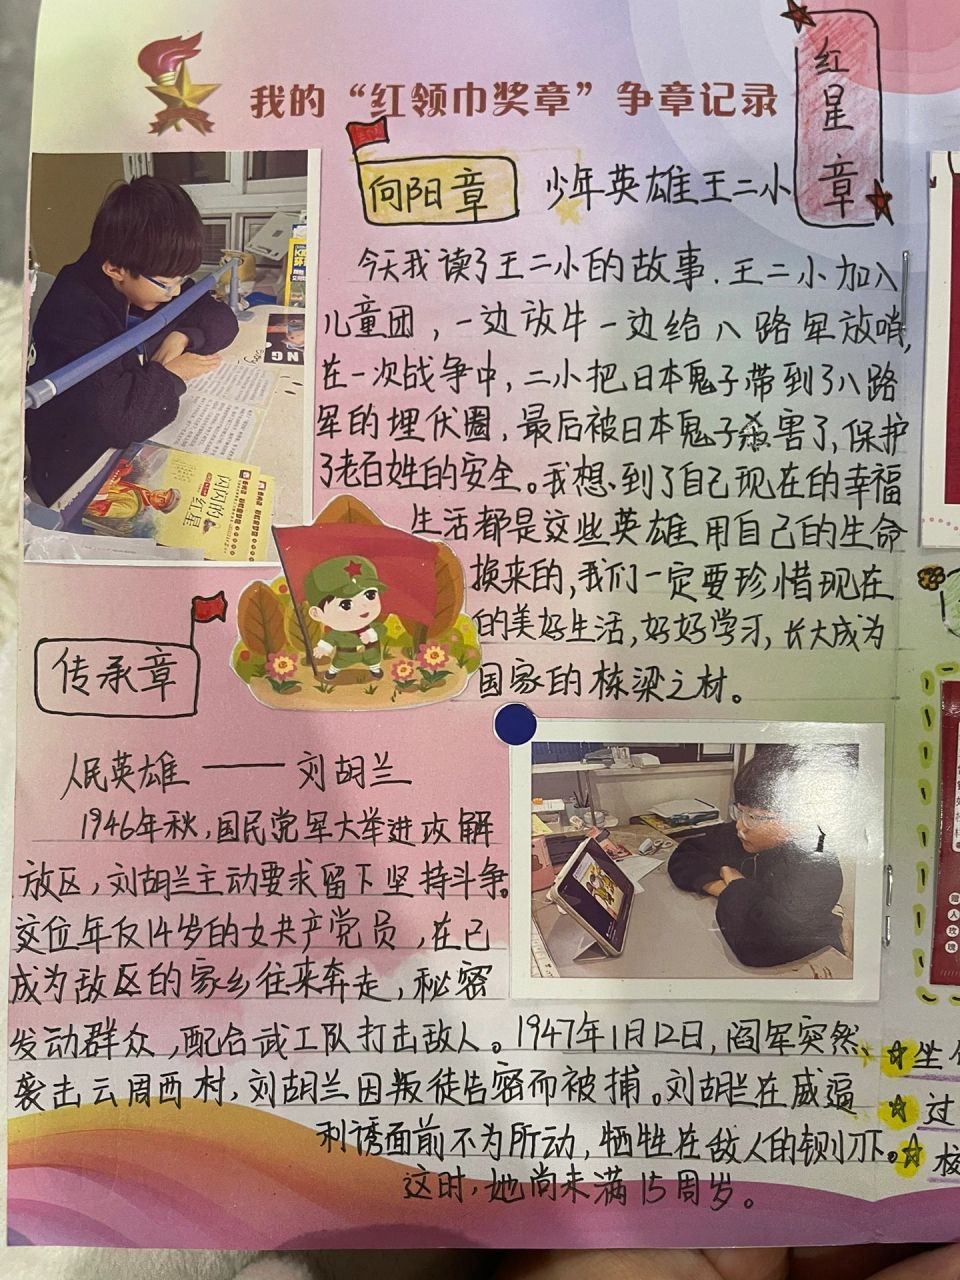 我的“红领巾奖章”争章记录
红星章
向阳章
少年英雄王二小
今天我读了王二小的故事.王二小加入
儿童团，一边放牛一边给八路军放哨,
在一次战争中，二小把日本鬼子带到了八路
军的埋伏圈，最后被日本鬼子杀害了，保护
了老百姓的安全。我想到了自己现在的幸福
生活都是这些英雄用自己的生命
换来的，我们一定要珍惜现在
的美好生活，好好学习，长大成为
国家的栋梁之材。
闪闪的
红星
传承章
人民英雄——刘胡兰
1946年秋，国民党军大举进攻解
放区，刘胡兰主动要求留下坚持斗争.
这位年仅14岁的女共产党员，在已
成为敌区的家乡往来奔走，秘密
发动群众，配合武工队打击敌人。1947年1月12日，阎军突然
袭击云周西村，刘胡兰因叛徒告密而被捕。刘胡兰在威逼
利诱面前不为所动，牺牲在敌人的铡刀下。
这时，她尚未满15周岁。
赠人玫瑰
过
校